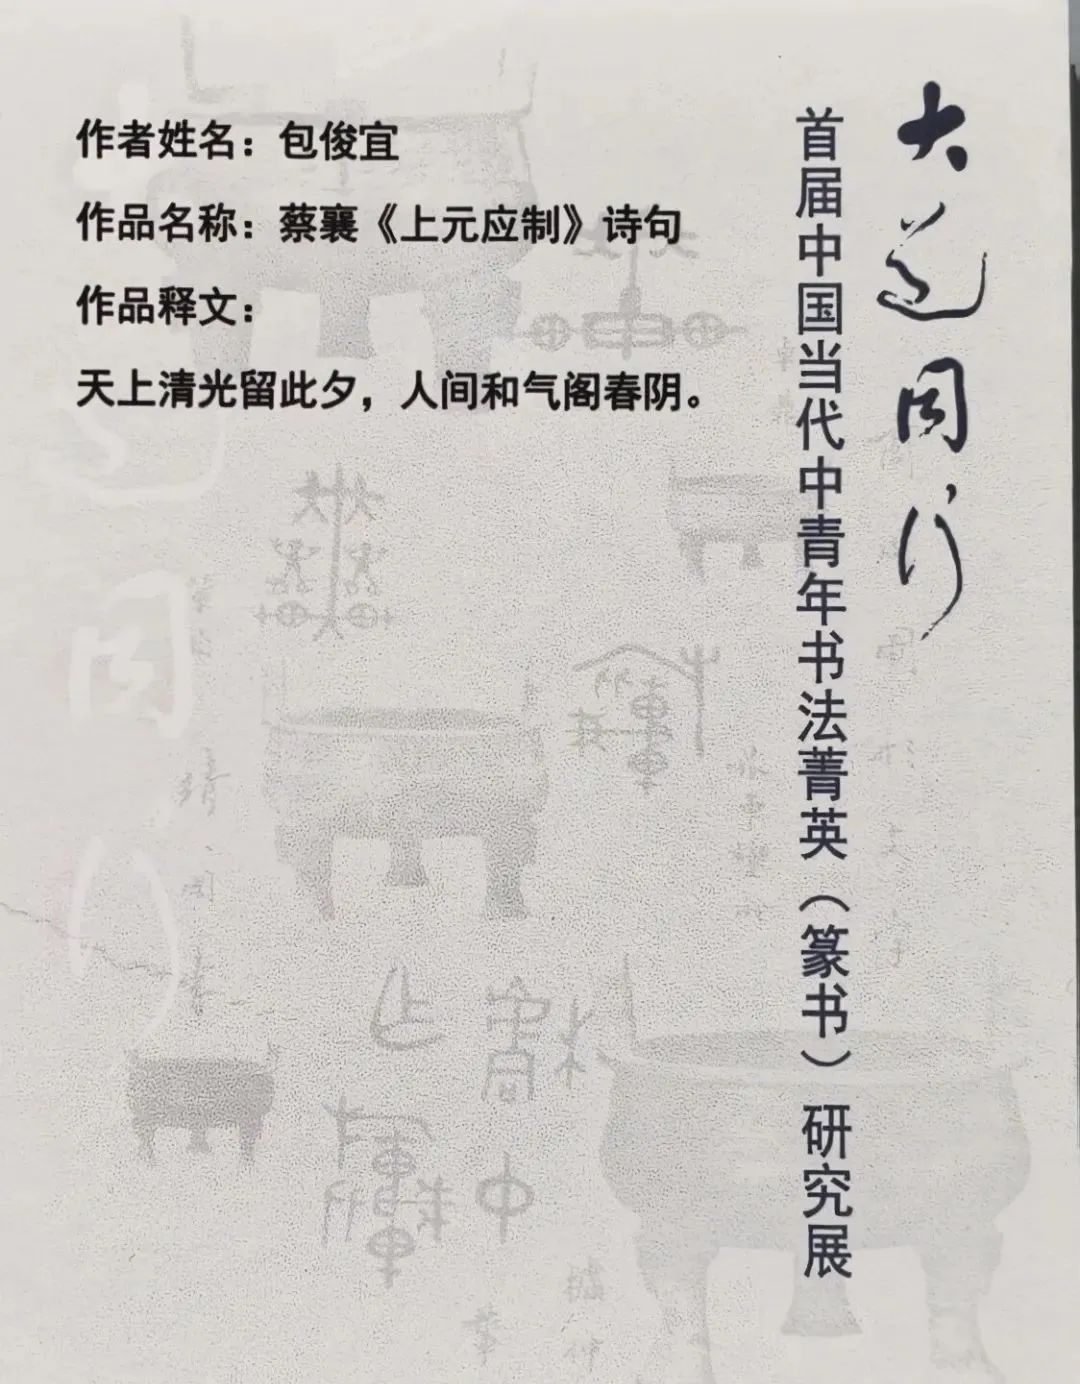 大道同行
首届中国当代中青年书法菁英（篆书）研究展
作者姓名：包俊宜
作品名称：蔡襄《上元应制》诗句
作品释文：
天上清光留此夕，人间和气阁春阴。